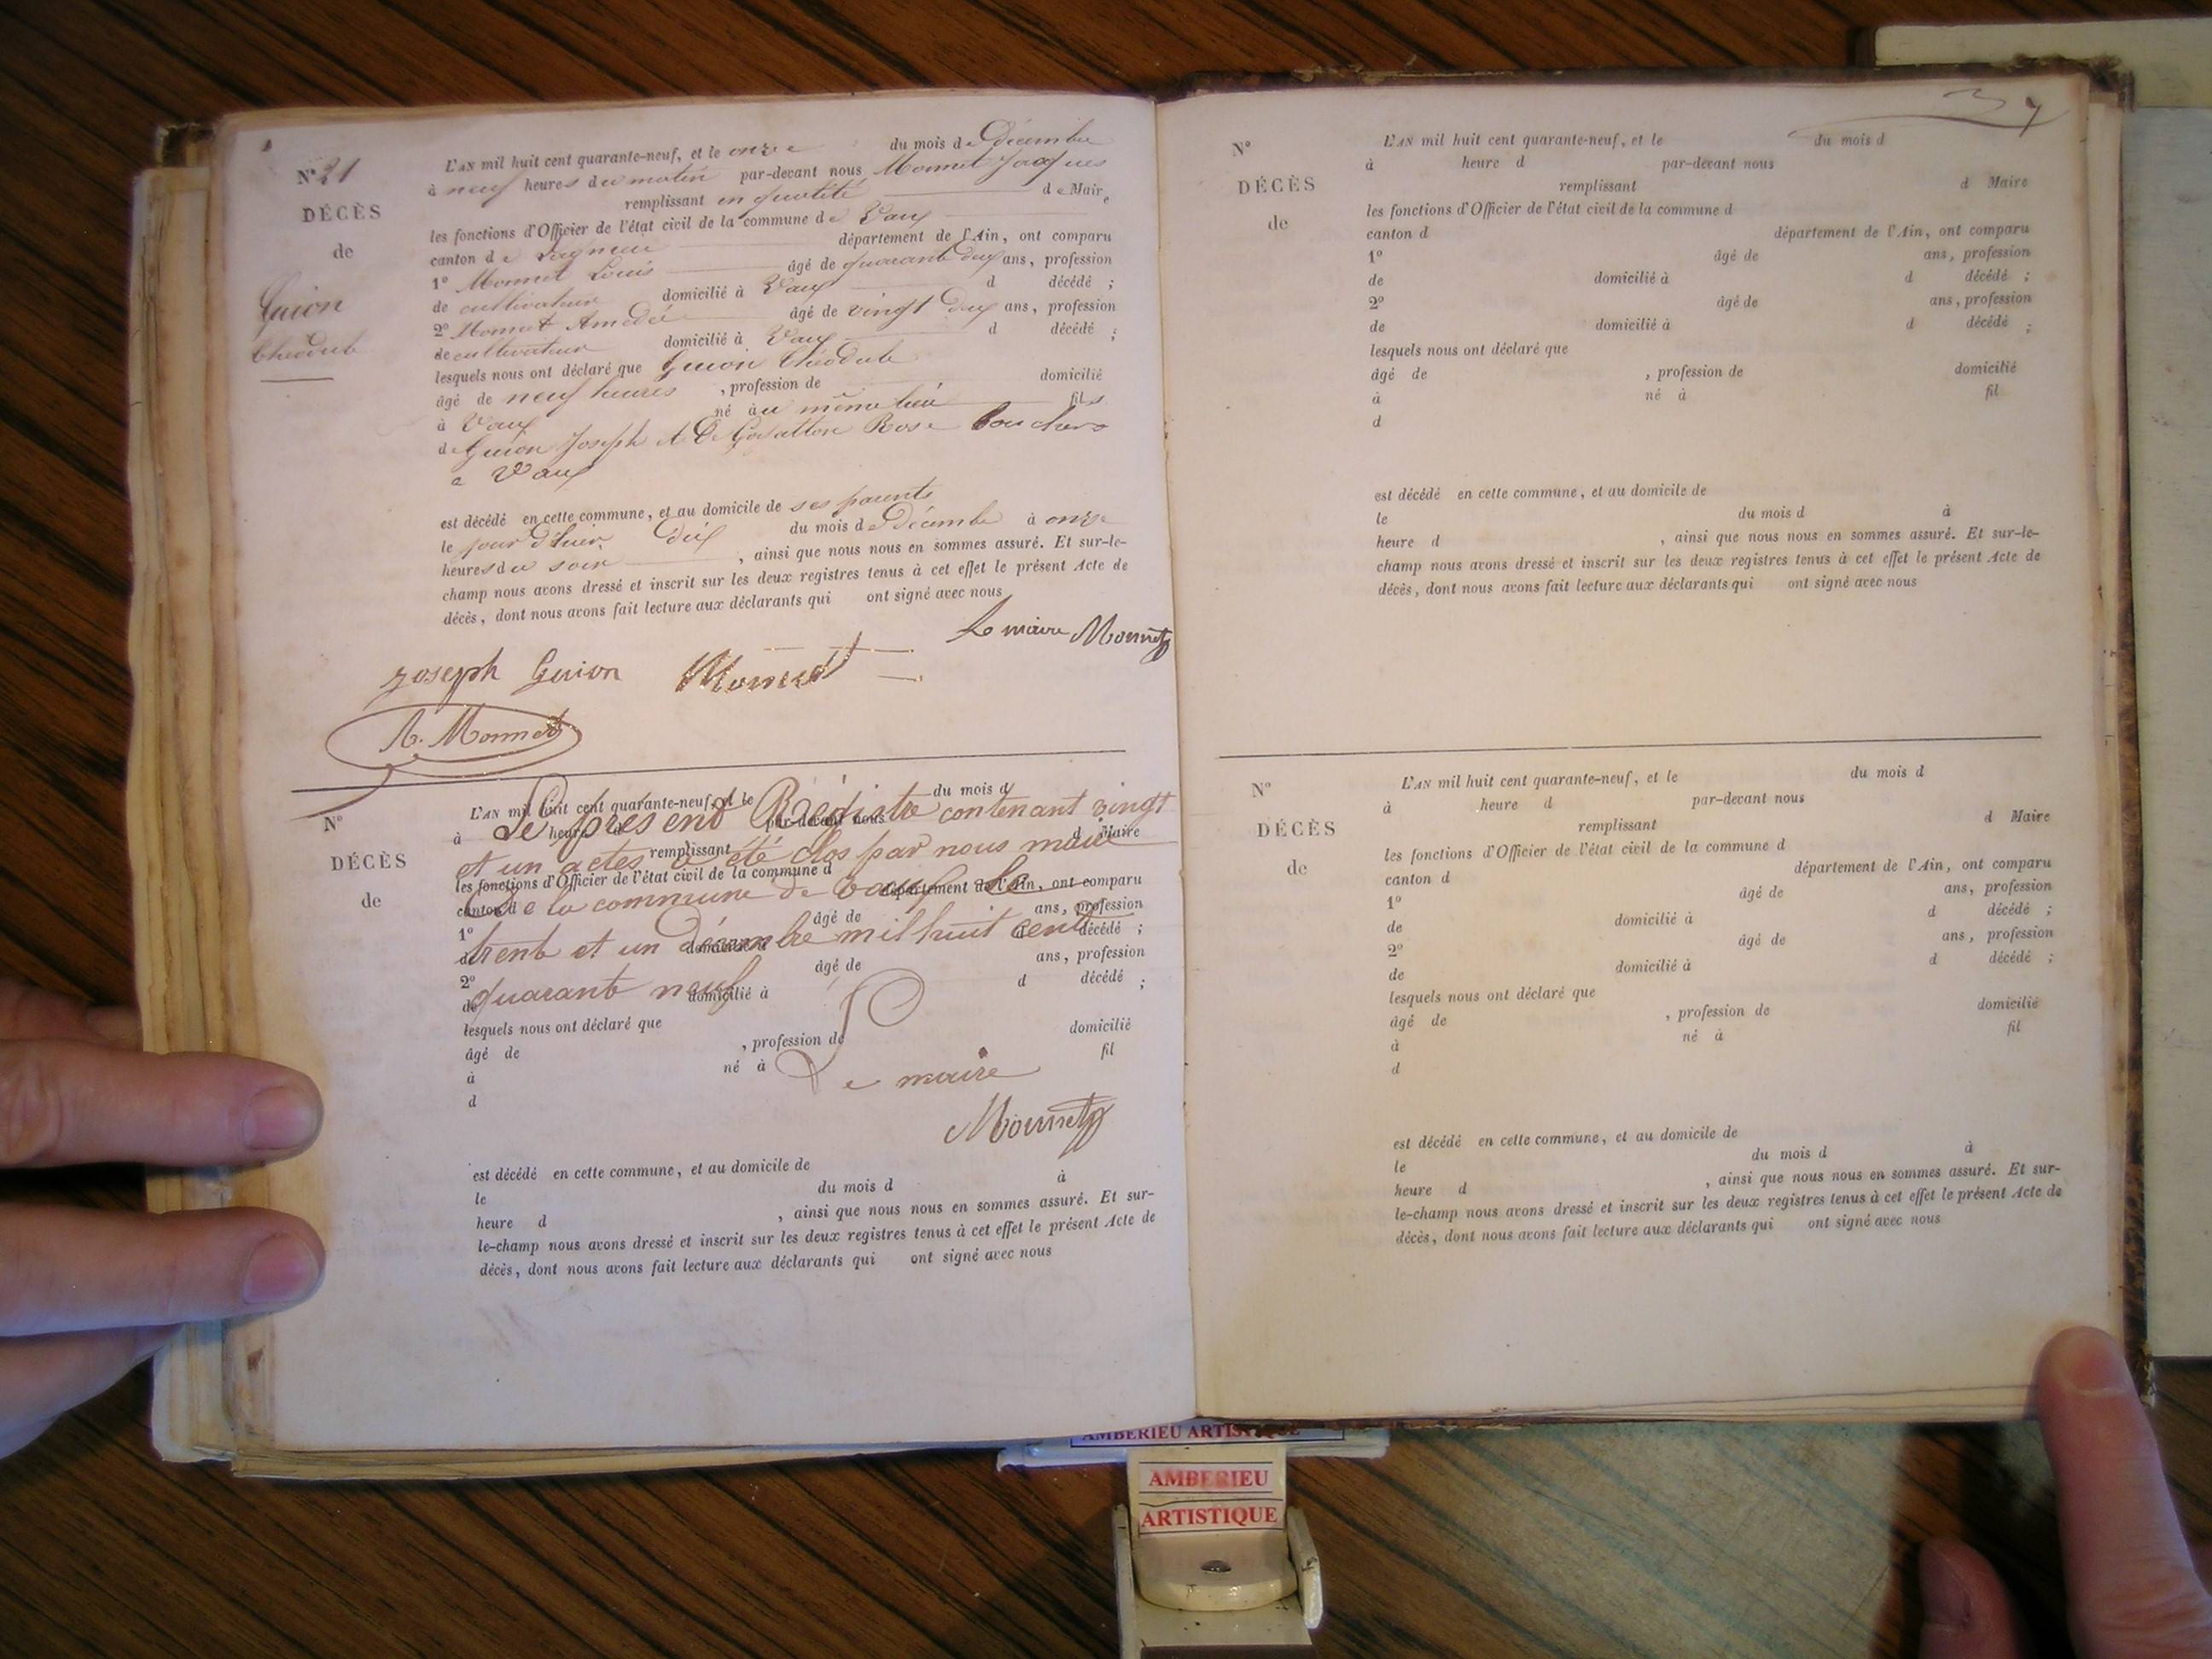 N° 21
DÉCÈS
de
Guion
Théodule
L'AN mil huit cent quarante-neuf, et le onze du mois de Décembre
à neuf heures du matin par-devant nous Monnet Jacques
remplissant en qualité de Maire
les fonctions d'Officier de l'état civil de la commune de Vaux
canton de Lagneu département de l'Ain, ont comparu
1° Monnet Louis âgé de quarante deux ans, profession
de cultivateur domicilié à Vaux d décédé ;
2° Monnet Amédée âgé de vingt deux ans, profession
de cultivateur domicilié à Vaux d décédé ;
lesquels nous ont déclaré que Guion Théodule
âgé de neuf heures , profession de domicilié
à Vaux né au même lieu fils
de Guion Joseph et de Rose
a Vaux
est décédé en cette commune, et au domicile de ses parents
le jour d'hier dix du mois de Décembre à onze
heures du soir , ainsi que nous nous en sommes assuré. Et sur-le-
champ nous avons dressé et inscrit sur les deux registres tenus à cet effet le présent Acte de
décès, dont nous avons fait lecture aux déclarants qui ont signé avec nous
Le maire Monnet
Joseph Guion Monnet
A. Monnet
N°
DÉCÈS
de
L'AN mil huit cent quarante-neuf, et le du mois d
Le présent Régistre contenant vingt
à heure d par-devant nous
remplissant d Maire
et un actes a été clos par nous maire
les fonctions d'Officier de l'état civil de la commune d
De la commune de Vaux Le
canton d département de l'Ain, ont comparu
1° âgé de ans, profession
trente et un Décembre mil huit cent
de domicilié à d décédé ;
2° âgé de ans, profession
quarante neuf
de domicilié à d décédé ;
lesquels nous ont déclaré que
âgé de , profession de domicilié
à né à fil
d
Le maire
Monnet
est décédé en cette commune, et au domicile de
le du mois d à
heure d , ainsi que nous nous en sommes assuré. Et sur-
le-champ nous avons dressé et inscrit sur les deux registres tenus à cet effet le présent Acte de
décès, dont nous avons fait lecture aux déclarants qui ont signé avec nous
37
N°
DÉCÈS
de
L'AN mil huit cent quarante-neuf, et le du mois d
à heure d par-devant nous
remplissant d Maire
les fonctions d'Officier de l'état civil de la commune d
canton d département de l'Ain, ont comparu
1° âgé de ans, profession
de domicilié à d décédé ;
2° âgé de ans, profession
de domicilié à d décédé ;
lesquels nous ont déclaré que
âgé de , profession de domicilié
à né à fil
d
est décédé en cette commune, et au domicile de
le du mois d à
heure d , ainsi que nous nous en sommes assuré. Et sur-le-
champ nous avons dressé et inscrit sur les deux registres tenus à cet effet le présent Acte de
décès, dont nous avons fait lecture aux déclarants qui ont signé avec nous
N°
DÉCÈS
de
L'AN mil huit cent quarante-neuf, et le du mois d
à heure d par-devant nous
remplissant d Maire
les fonctions d'Officier de l'état civil de la commune d
canton d département de l'Ain, ont comparu
1° âgé de ans, profession
de domicilié à d décédé ;
2° âgé de ans, profession
de domicilié à d décédé ;
lesquels nous ont déclaré que
âgé de , profession de domicilié
à né à fil
d
est décédé en cette commune, et au domicile de
le du mois d à
heure d , ainsi que nous nous en sommes assuré. Et sur-
le-champ nous avons dressé et inscrit sur les deux registres tenus à cet effet le présent Acte de
décès, dont nous avons fait lecture aux déclarants qui ont signé avec nous
AMBERIEU ARTISTIQUE
AMBERIEU
ARTISTIQUE